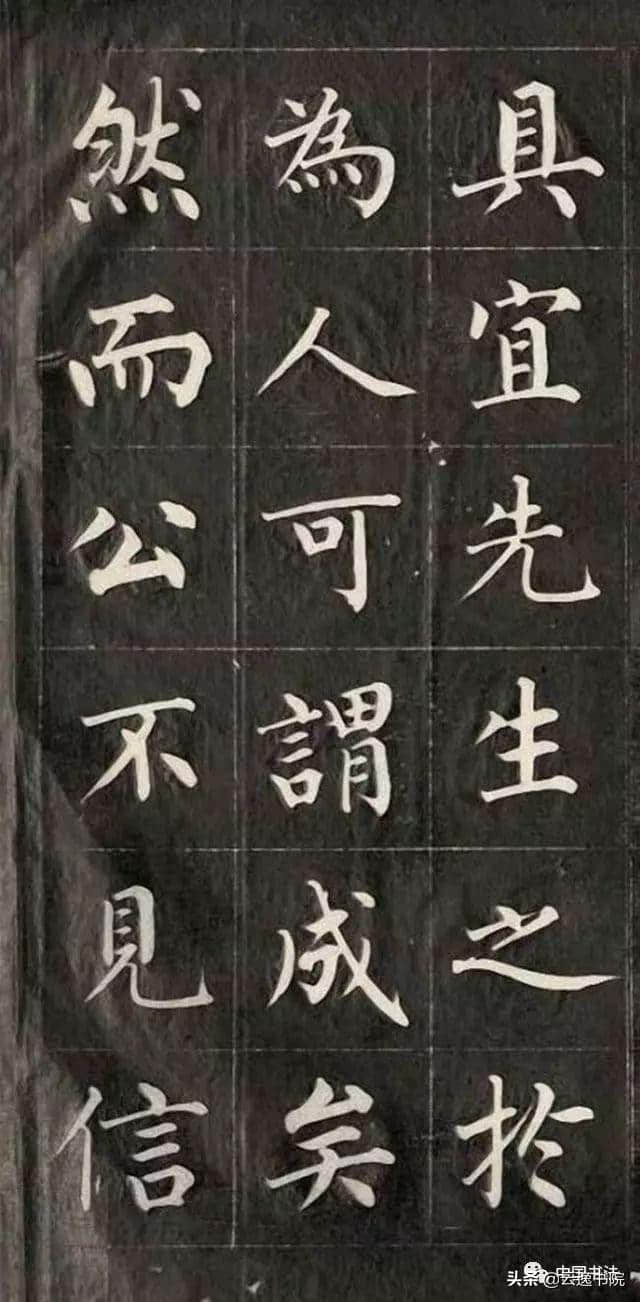 具宜先生之於
為人可謂成矣
然而公不見信
中国书法
头条@云逸书院